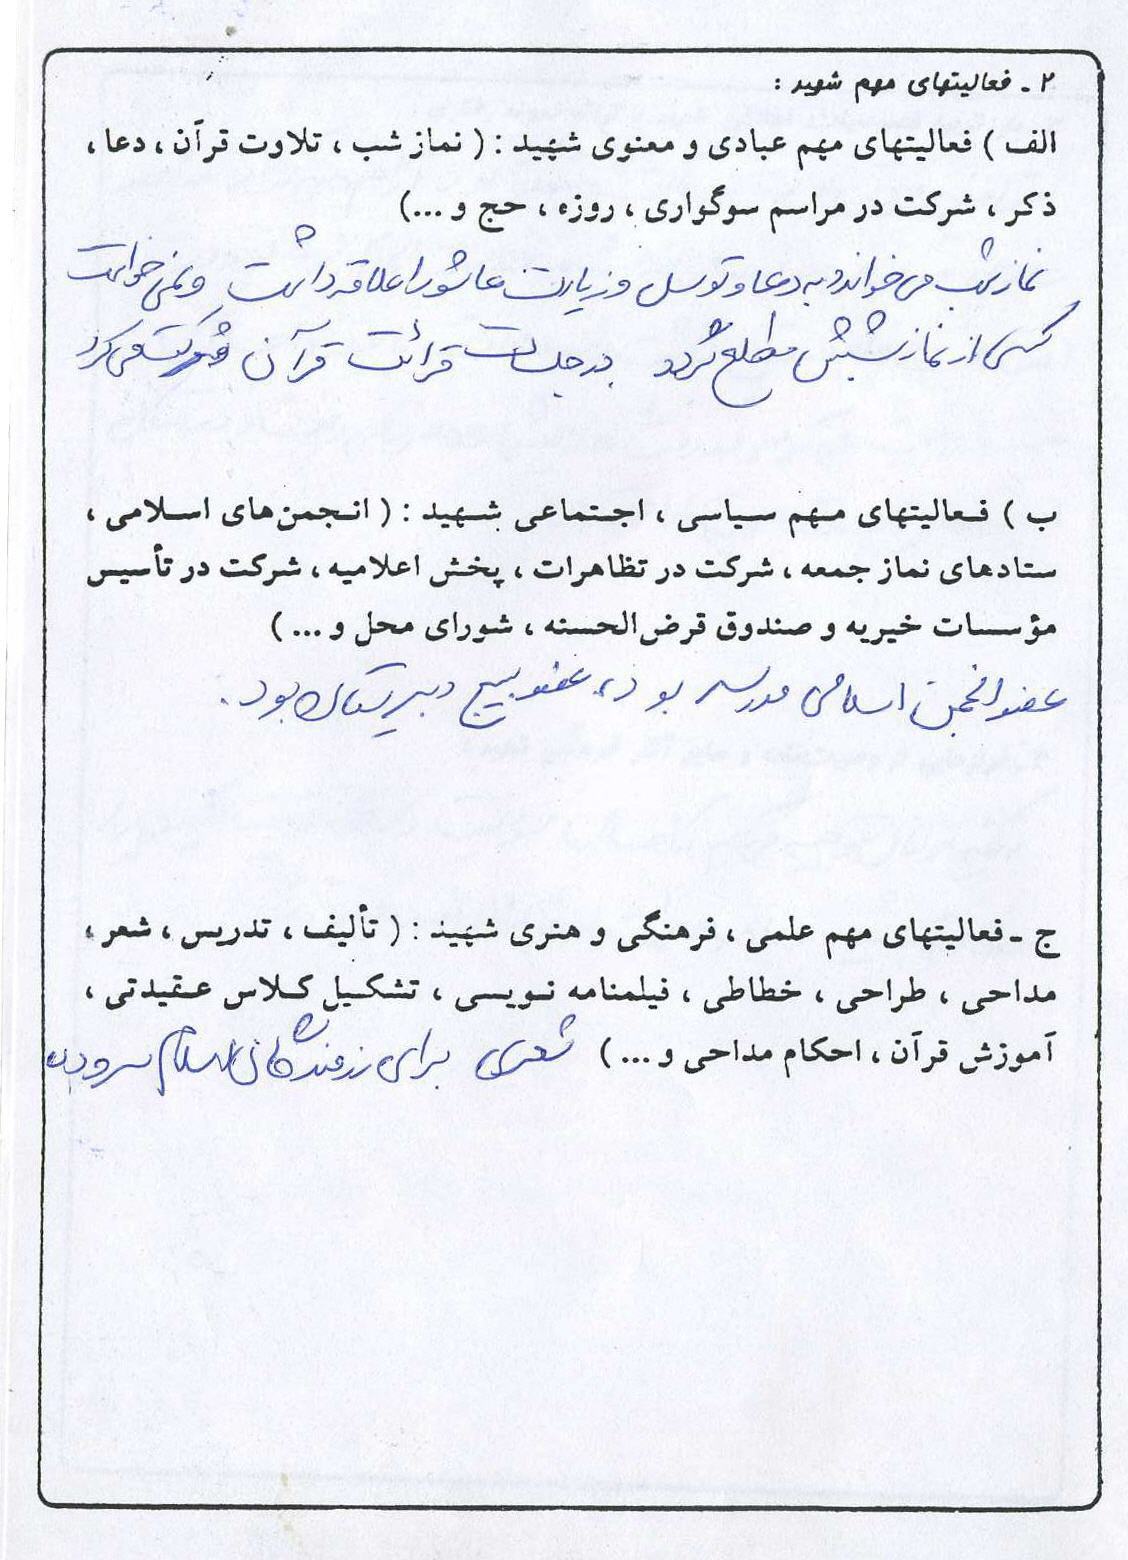 ۲ ـ فعالیتهای مهم شهید :
الف ) فعالیتهای مهم عبادی و معنوی شهید : ( نماز شب ، تلاوت قرآن ، دعا ،
ذکر ، شرکت در مراسم سوگواری ، روزه ، حج و ...)
نماز شب می خواند و به دعا و توسل و زیارت عاشورا علاقه داشت و نمی خواست
کسی از نماز شبش مطلع گردد در جلسات قرائت قرآن شرکت می کرد
ب ) فعالیتهای مهم سیاسی ، اجتماعی شهید : ( انجمن‌های اسلامی ،
ستادهای نماز جمعه ، شرکت در تظاهرات ، پخش اعلامیه ، شرکت در تأسیس
مؤسسات خیریه و صندوق قرض‌الحسنه ، شورای محل و ... )
عضو انجمن اسلامی مدرسه بود ، عضو بسیج دبیرستان بود .
ج ـ فعالیتهای مهم علمی ، فرهنگی و هنری شهید : ( تألیف ، تدریس ، شعر ،
مداحی ، طراحی ، خطاطی ، فیلمنامه نویسی ، تشکیل کلاس عقیدتی ،
آموزش قرآن ، احکام مداحی و ... ) شعری برای رزمندگان اسلام سروده